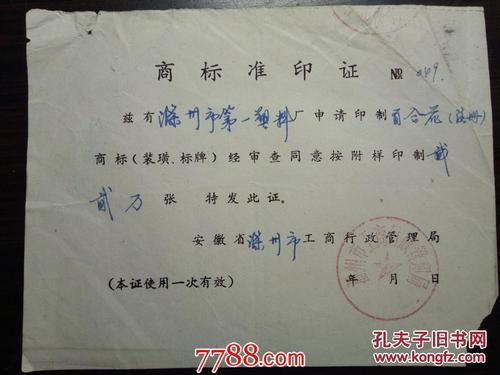 商标准印证 №049.
兹有滁州市第一塑料厂申请印制百合花(注册)
商标(装璜、标牌)经审查同意按附样印制贰
贰万张 特发此证。
安徽省滁州市工商行政管理局
(本证使用一次有效) 年 月 日
7788.com
孔夫子旧书网
www.kongfz.com